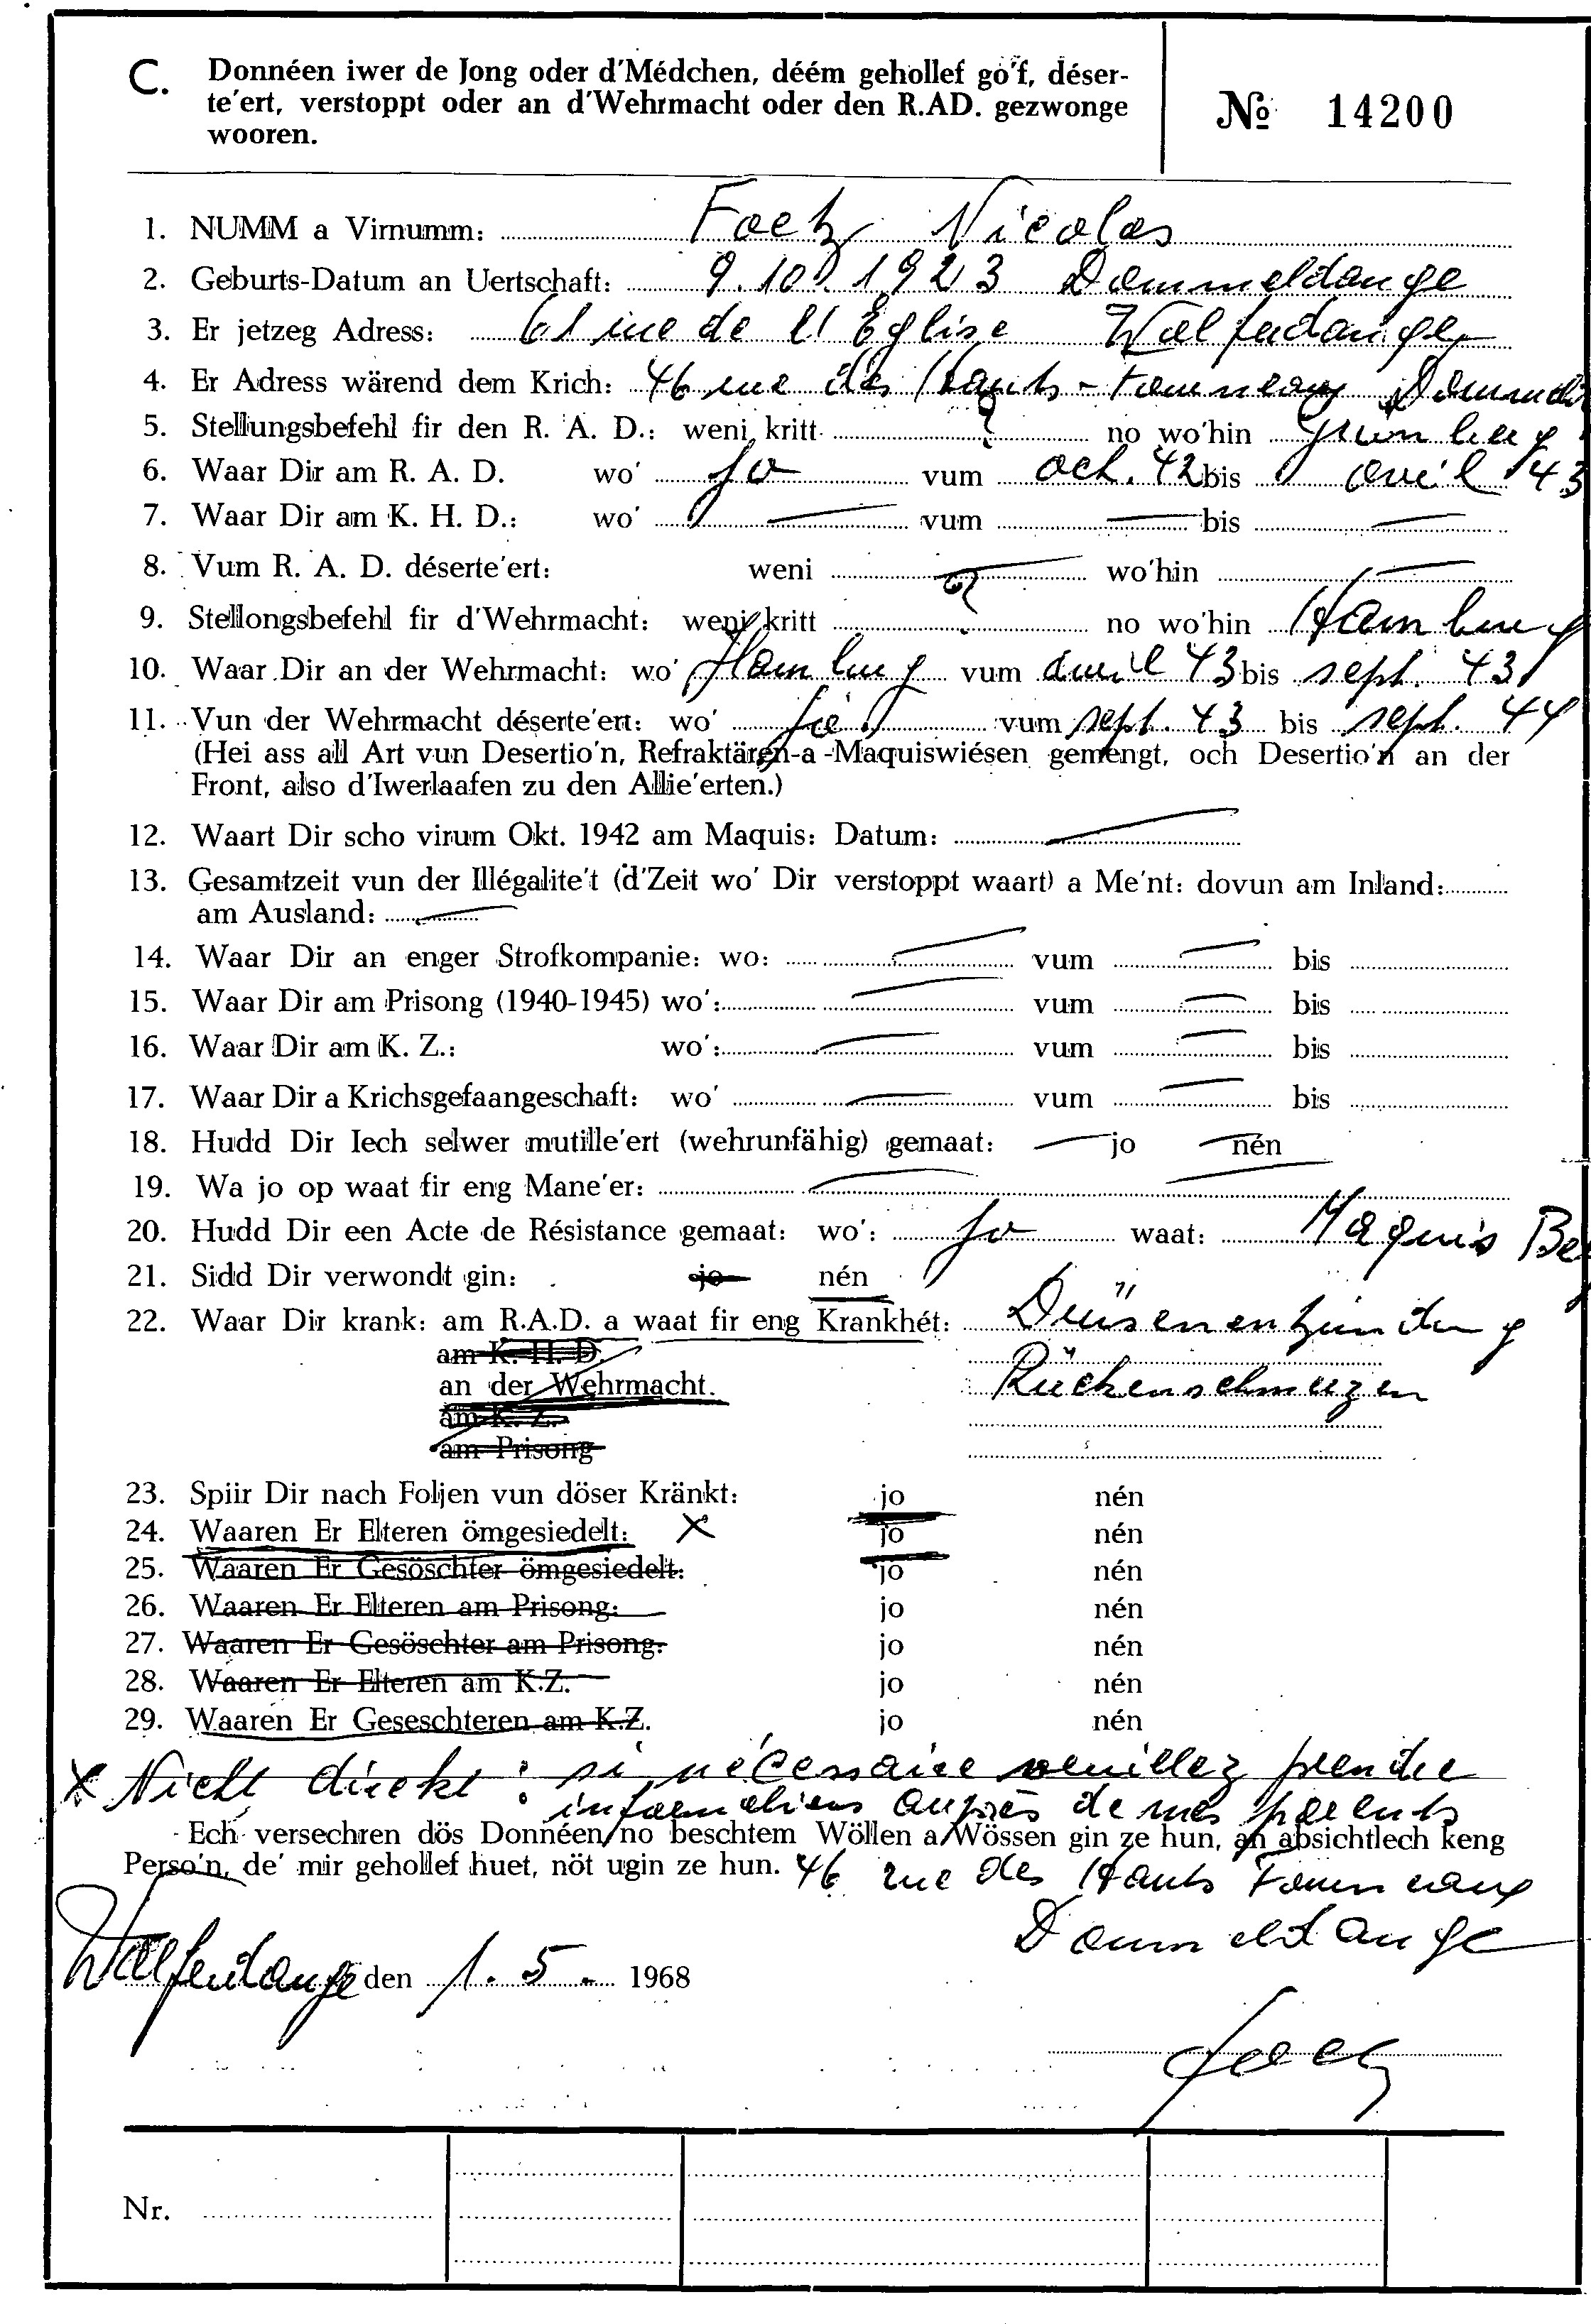 C. Donnéen iwer de Jong oder d'Médchen, déém gehollef go'f, déser-
te'ert, verstoppt oder an d'Wehrmacht oder den R.AD. gezwonge
wooren.
№ 14200
1. NUMM a Virnumm: Foetz Nicolas
2. Geburts-Datum an Uertschaft: 9.10.1923 Dommeldange
3. Er jetzeg Adress: 61 rue de l'Eglise Walferdange
4. Er Adress wärend dem Krich: 46 rue des Hauts-Fourneaux
5. Stellungsbefehl fir den R. A. D.: weni kritt ? no wo'hin
6. Waar Dir am R. A. D. wo' Jo vum oct. 42 bis avril 43
7. Waar Dir am K. H. D.: wo' — vum — bis —
8. Vum R. A. D. déserte'ert: weni — wo'hin —
9. Stellongsbefehl fir d'Wehrmacht: weni kritt ? no wo'hin Hamburg
10. Waar Dir an der Wehrmacht: wo' Hamburg vum avril 43 bis sept. 43
11. Vun der Wehrmacht déserte'ert: wo' vum sept. 43 bis sept. 44
(Hei ass all Art vun Desertio'n, Refraktären-a -Maquiswiésen gemengt, och Desertio'n an der
Front, also d'Iwerlaafen zu den Allie'erten.)
12. Waart Dir scho virum Okt. 1942 am Maquis: Datum: —
13. Gesamtzeit vun der Illégalite't (d'Zeit wo' Dir verstoppt waart) a Me'nt: dovun am Inland:
am Ausland: —
14. Waar Dir an enger Strofkompanie: wo: — vum — bis
15. Waar Dir am Prisong (1940-1945) wo': — vum — bis
16. Waar Dir am K. Z.: wo': — vum — bis
17. Waar Dir a Krichsgefaangeschaft: wo' — vum — bis
18. Hudd Dir Iech selwer mutille'ert (wehrunfähig) gemaat: — jo — nén
19. Wa jo op waat fir eng Mane'er: —
20. Hudd Dir een Acte de Résistance gemaat: wo': Jo waat: Maquis
21. Sidd Dir verwondt gin: jo nén
22. Waar Dir krank: am R.A.D. a waat fir eng Krankhét: Drüsenentzündung
am K. H. D.
an der Wehrmacht. Rückenschmerzen
am K. Z.
am Prisong
23. Spiir Dir nach Foljen vun döser Kränkt: jo nén
24. Waaren Er Elteren ömgesiedelt: X jo nén
25. Waaren Er Gesöschter ömgesiedelt: jo nén
26. Waaren Er Elteren am Prisong: jo nén
27. Waaren Er Gesöschter am Prisong: jo nén
28. Waaren Er Elteren am K.Z. jo nén
29. Waaren Er Geseschteren am K.Z. jo nén
X Nicht direkt: si nécessaire veuillez prendre
informations auprès de mes parents
Ech versechren dös Donnéen no beschtem Wöllen a Wössen gin ze hun, an absichtlech keng
Perso'n, de' mir gehollef huet, nöt ugin ze hun. 46 rue des Hauts Fourneaux
Dommeldange
Walferdange den 1. 5. 1968
Foetz
Nr.